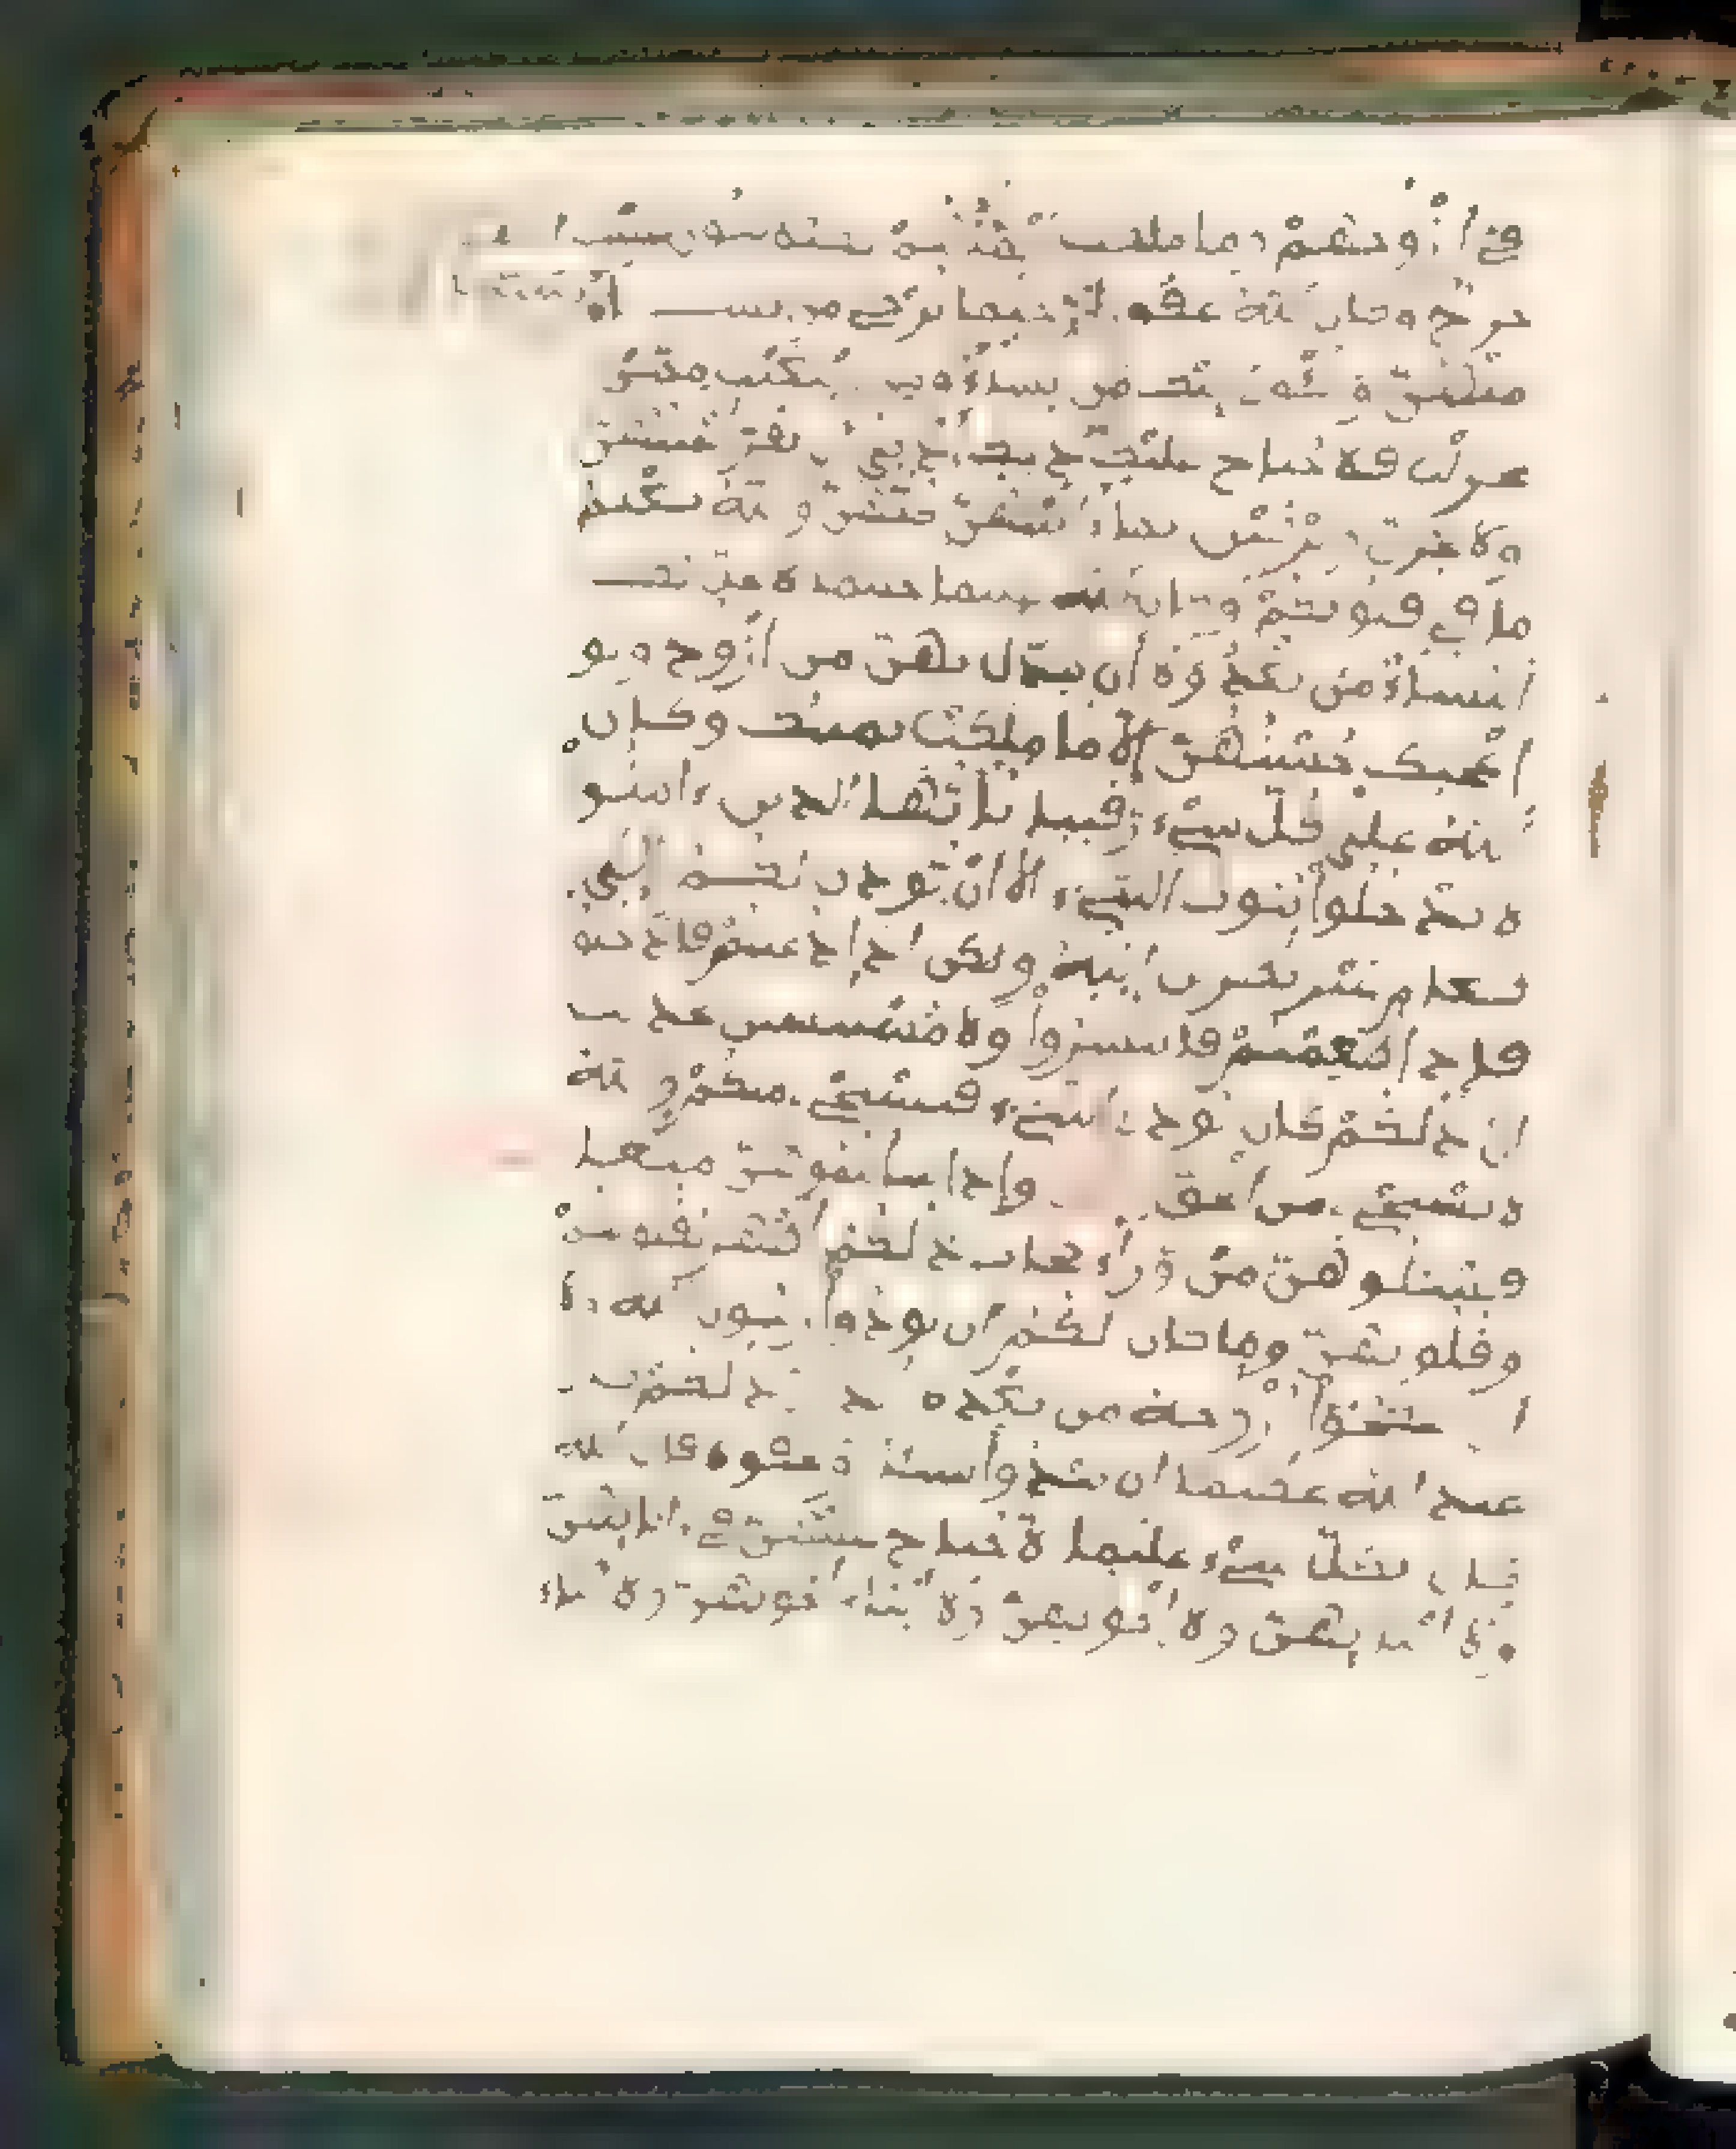 في أزوجهم وما ملكت أيمنهم
حرج وكان الله غفورا رحيما ترجي من تشاء
منهن وتئوي إليك من تشاء ومن ابتغيت ممن
عزلت فلا جناح عليك ذلك أدنى أن تقر أعينهن
ولا يحزن ويرضين بما ءاتيتهن كلهن والله يعلم
ما في قلوبكم وكان الله عليما حليما لا يحل لك
النساء من بعد ولا أن تبدل بهن من أزوج ولو
أعجبك حسنهن إلا ما ملكت يمينك وكان
الله على كل شيء رقيبا يأيها الذين ءامنوا
لا تدخلوا بيوت النبيء إلا أن يوذن لكم إلى
طعام غير نظرين إنيه ولكن إذا دعيتم فادخلوا
فإذا طعمتم فانتشروا ولا مستنسين لحديث
إن ذلكم كان يوذي النبيء فيستحي منكم والله
لا يستحي من الحق وإذا سألتموهن متعا
فسئلوهن من وراء حجاب ذلكم أطهر لقلوبكم
وقلوبهن وما كان لكم أن توذوا رسول الله ولا
أن تنكحوا أزوجه من بعده أبدا إن ذلكم كان
عند الله عظيما إن تبدوا شيئا أو تخفوه فإن الله
كان بكل شيء عليما لا جناح عليهن في ءابائهن
ولا أبنائهن ولا إخونهن ولا أبناء إخونهن ولا أبناء